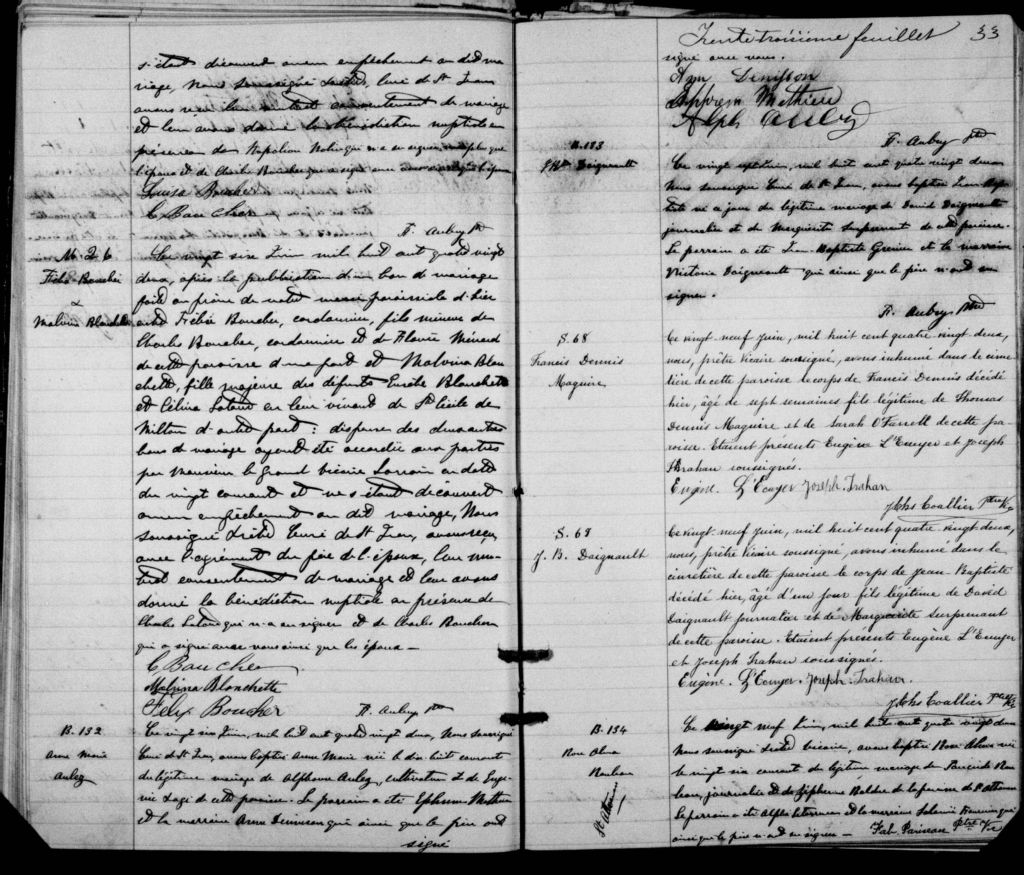 s'étant découvert aucun empêchement au dit ma
riage, Nous soussigné Curé de St Jean
avons reçu leur mutuel consentement de mariage
et leur avons donné la bénédiction nuptiale en
présence de Napoléon qui n'a su signer
l'épouse et de Charles Boucher qui a signé avec
Louisa Boucher
C Boucher
F. Aubry Ptre
M. 26
Félix Boucher
&
Malvina Blanchette
Le vingt six Juin mil huit cent quatre vingt
deux, après la publication d'un ban de mariage
faite au prône de notre messe paroissiale d'hier
entre Félix Boucher, cordonnier, fils mineur de
Charles Boucher, cordonnier et de Flavie Ménard
de cette paroisse d'une part et Malvina Blan
chette, fille majeure des défunts Eusèbe Blanchette
et Célina Lataud en leur vivant de Ste Cécile de
Milton d'autre part : dispense des deux autres
bans de mariage ayant été accordée aux parties
par Monsieur le Grand Vicaire Lorrain en date
du vingt courant et ne s'étant découvert
aucun empêchement au dit mariage, Nous
soussigné Curé de St Jean, avons reçu
avec l'agrément du père de l'époux, leur mu
tuel consentement de mariage et leur avons
donné la bénédiction nuptiale en présence de
Charles qui n'a su signer et de Charles Boucher
qui a signé avec nous ainsi que les époux —
C Boucher
Malvina Blanchette
Felix Boucher
F. Aubry Ptre
B. 132
Anne Marie
Aubry
Le vingt six Juin, mil huit cent quatre vingt deux, Nous soussigné
Curé de St Jean, avons baptisé Anne Marie née le dix huit courant
du légitime mariage de Alphonse Aubry, cultivateur & de Eugé
nie de cette paroisse. Le parrain a été Ephrem Mathieu
et la marraine Anne Dennison qui ainsi que le père ont
signé
Trente troisième feuillet 33
signé avec nous.
Ann Denisson
Ephrem Mathieu
Alph Aubry
F. Aubry Ptre
B. 133
J. Bte Daignault
Le vingt Juin, mil huit cent quatre vingt deux
Nous soussigné Curé de St Jean, avons baptisé Jean Bap
tiste né ce jour du légitime mariage de David Daignault
journalier et de Marguerite Surprenant de cette paroisse.
Le parrain a été Jean Baptiste et la marraine
Victoria Daigneault qui ainsi que le père n'ont su
signer.
F. Aubry Ptre
S. 68
Francis Dennis
Maguire
Ce vingt neuf Juin, mil huit cent quatre vingt deux,
nous, prêtre Vicaire soussigné, avons inhumé dans le cime
tière de cette paroisse le corps de Francis Dennis décédé
hier, âgé de sept semaines fils légitime de Thomas
Dennis Maguire et de Sarah O'Farroll de cette pa
roisse. Etaient présents Eugène L'Ecuyer et Joseph
Trahan soussignés.
Eugène. L'Ecuyer Joseph. Trahan
J. Chs Coallier Ptre Vic
S. 68
J. B. Daignault
Ce vingt neuf Juin, mil huit cent quatre vingt deux,
nous, prêtre Vicaire soussigné, avons inhumé dans le
cimetière de cette paroisse le corps de Jean-Baptiste
décédé hier, âgé d'un jour fils légitime de David
Daignault journalier et de Marguerite Surprenant
de cette paroisse. Etaient présents Eugène L'Ecuyer
et Joseph Trahan soussignés.
Eugène. L'Ecuyer. Joseph. Trahan.
J. Chs Coallier Ptre Vic
B. 134
Rose Alma
St Athanase
Le vingt neuf Juin, mil huit cent quatre vingt deux
Nous soussigné vicaire, avons baptisé Rose Alma née
le vingt six courant du légitime mariage de
journalier et de Zéphirine de la paroisse de St Athanase
Le parrain a été et la marraine qui
ainsi que le père n'ont su signer — Fab. Parizeau Ptre Vic